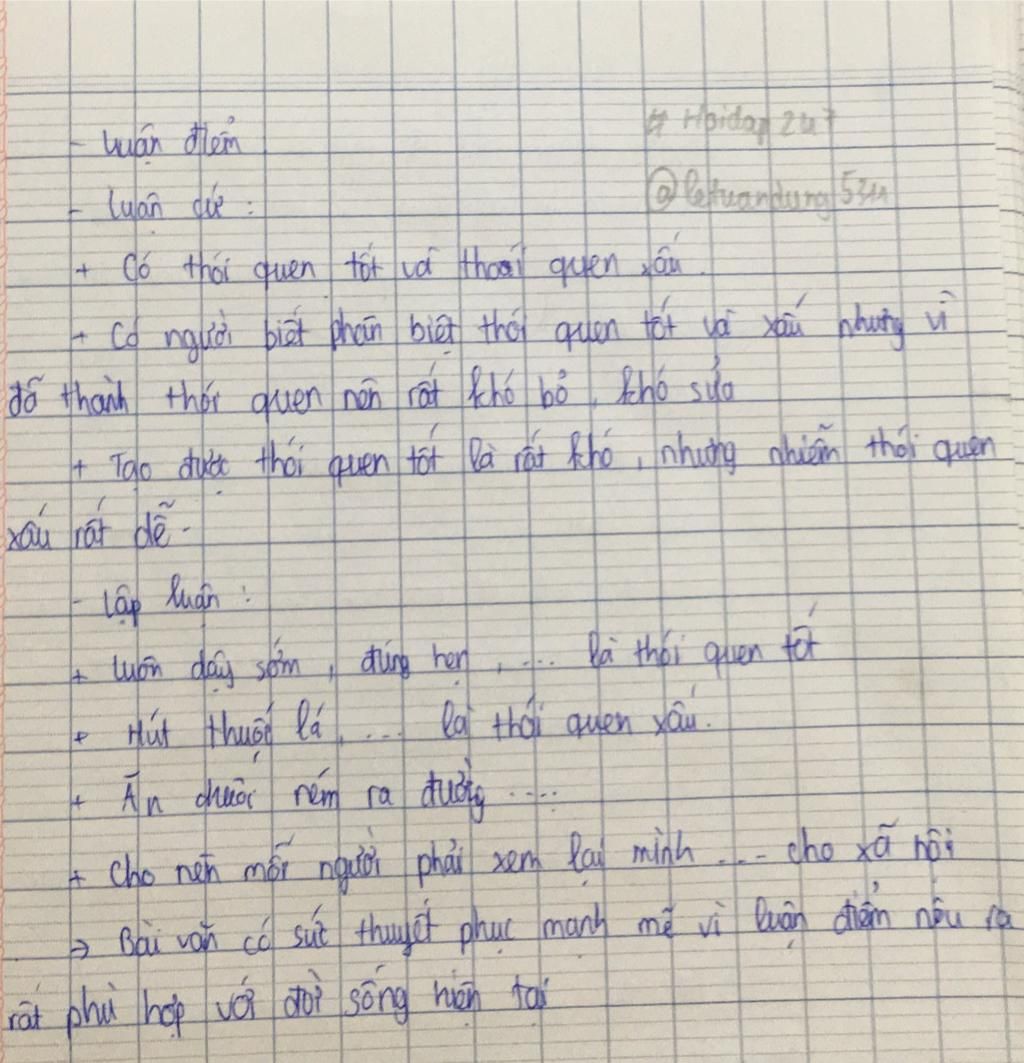 - Luận điểm
# Hoidap 247
- Luận cứ :
@letuandung 5311
+ Có thói quen tốt và thói quen xấu.
+ Có người biết phân biệt thói quen tốt và xấu nhưng vì
đã thành thói quen nên rất khó bỏ, khó sửa
+ Tạo được thói quen tốt là rất khó, nhưng nhiễm thói quen
xấu rất dễ.
- Lập luận :
+ Luôn dậy sớm, đúng hẹn, .... là thói quen tốt
+ Hút thuốc lá, .... là thói quen xấu.
+ Ăn chuối ném ra đường ....
+ Cho nên mỗi người phải xem lại mình .... cho xã hội
=> Bài văn có sức thuyết phục mạnh mẽ vì luận điểm nêu ra
rất phù hợp với đời sống hiện tại